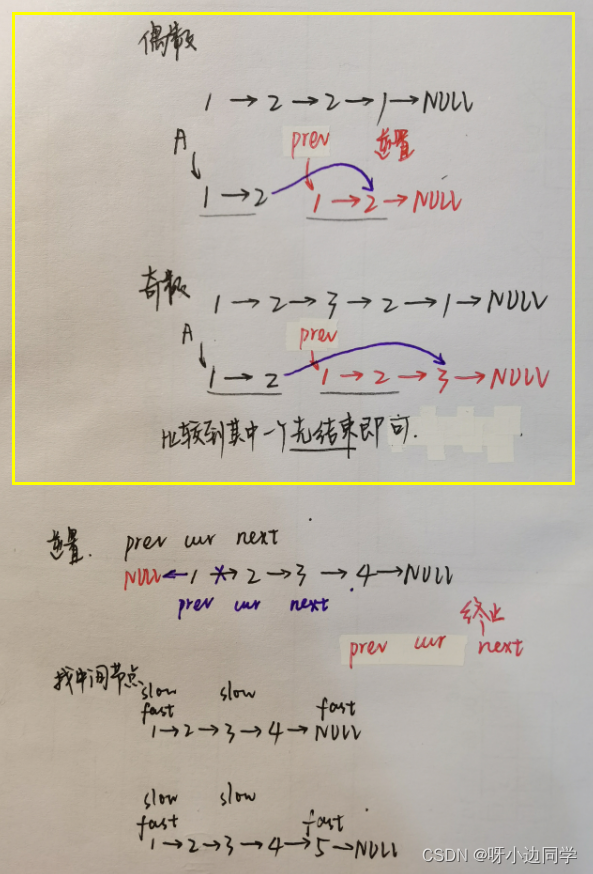 偶数
1→2→2→1→NULL
A prev 逆置
1→2 1→2→NULL
奇数
1→2→3→2→1→NULL
A prev
1→2 1→2→3→NULL
比较到其中一个先结束即可.
逆置. prev cur next
NULL←1 →2→3→4→NULL
prev cur next
终止
prev cur next
找中间节点
slow slow
fast fast
1→2→3→4→NULL
slow slow
fast fast
1→2→3→4→5→NULL
CSDN @呀小边同学